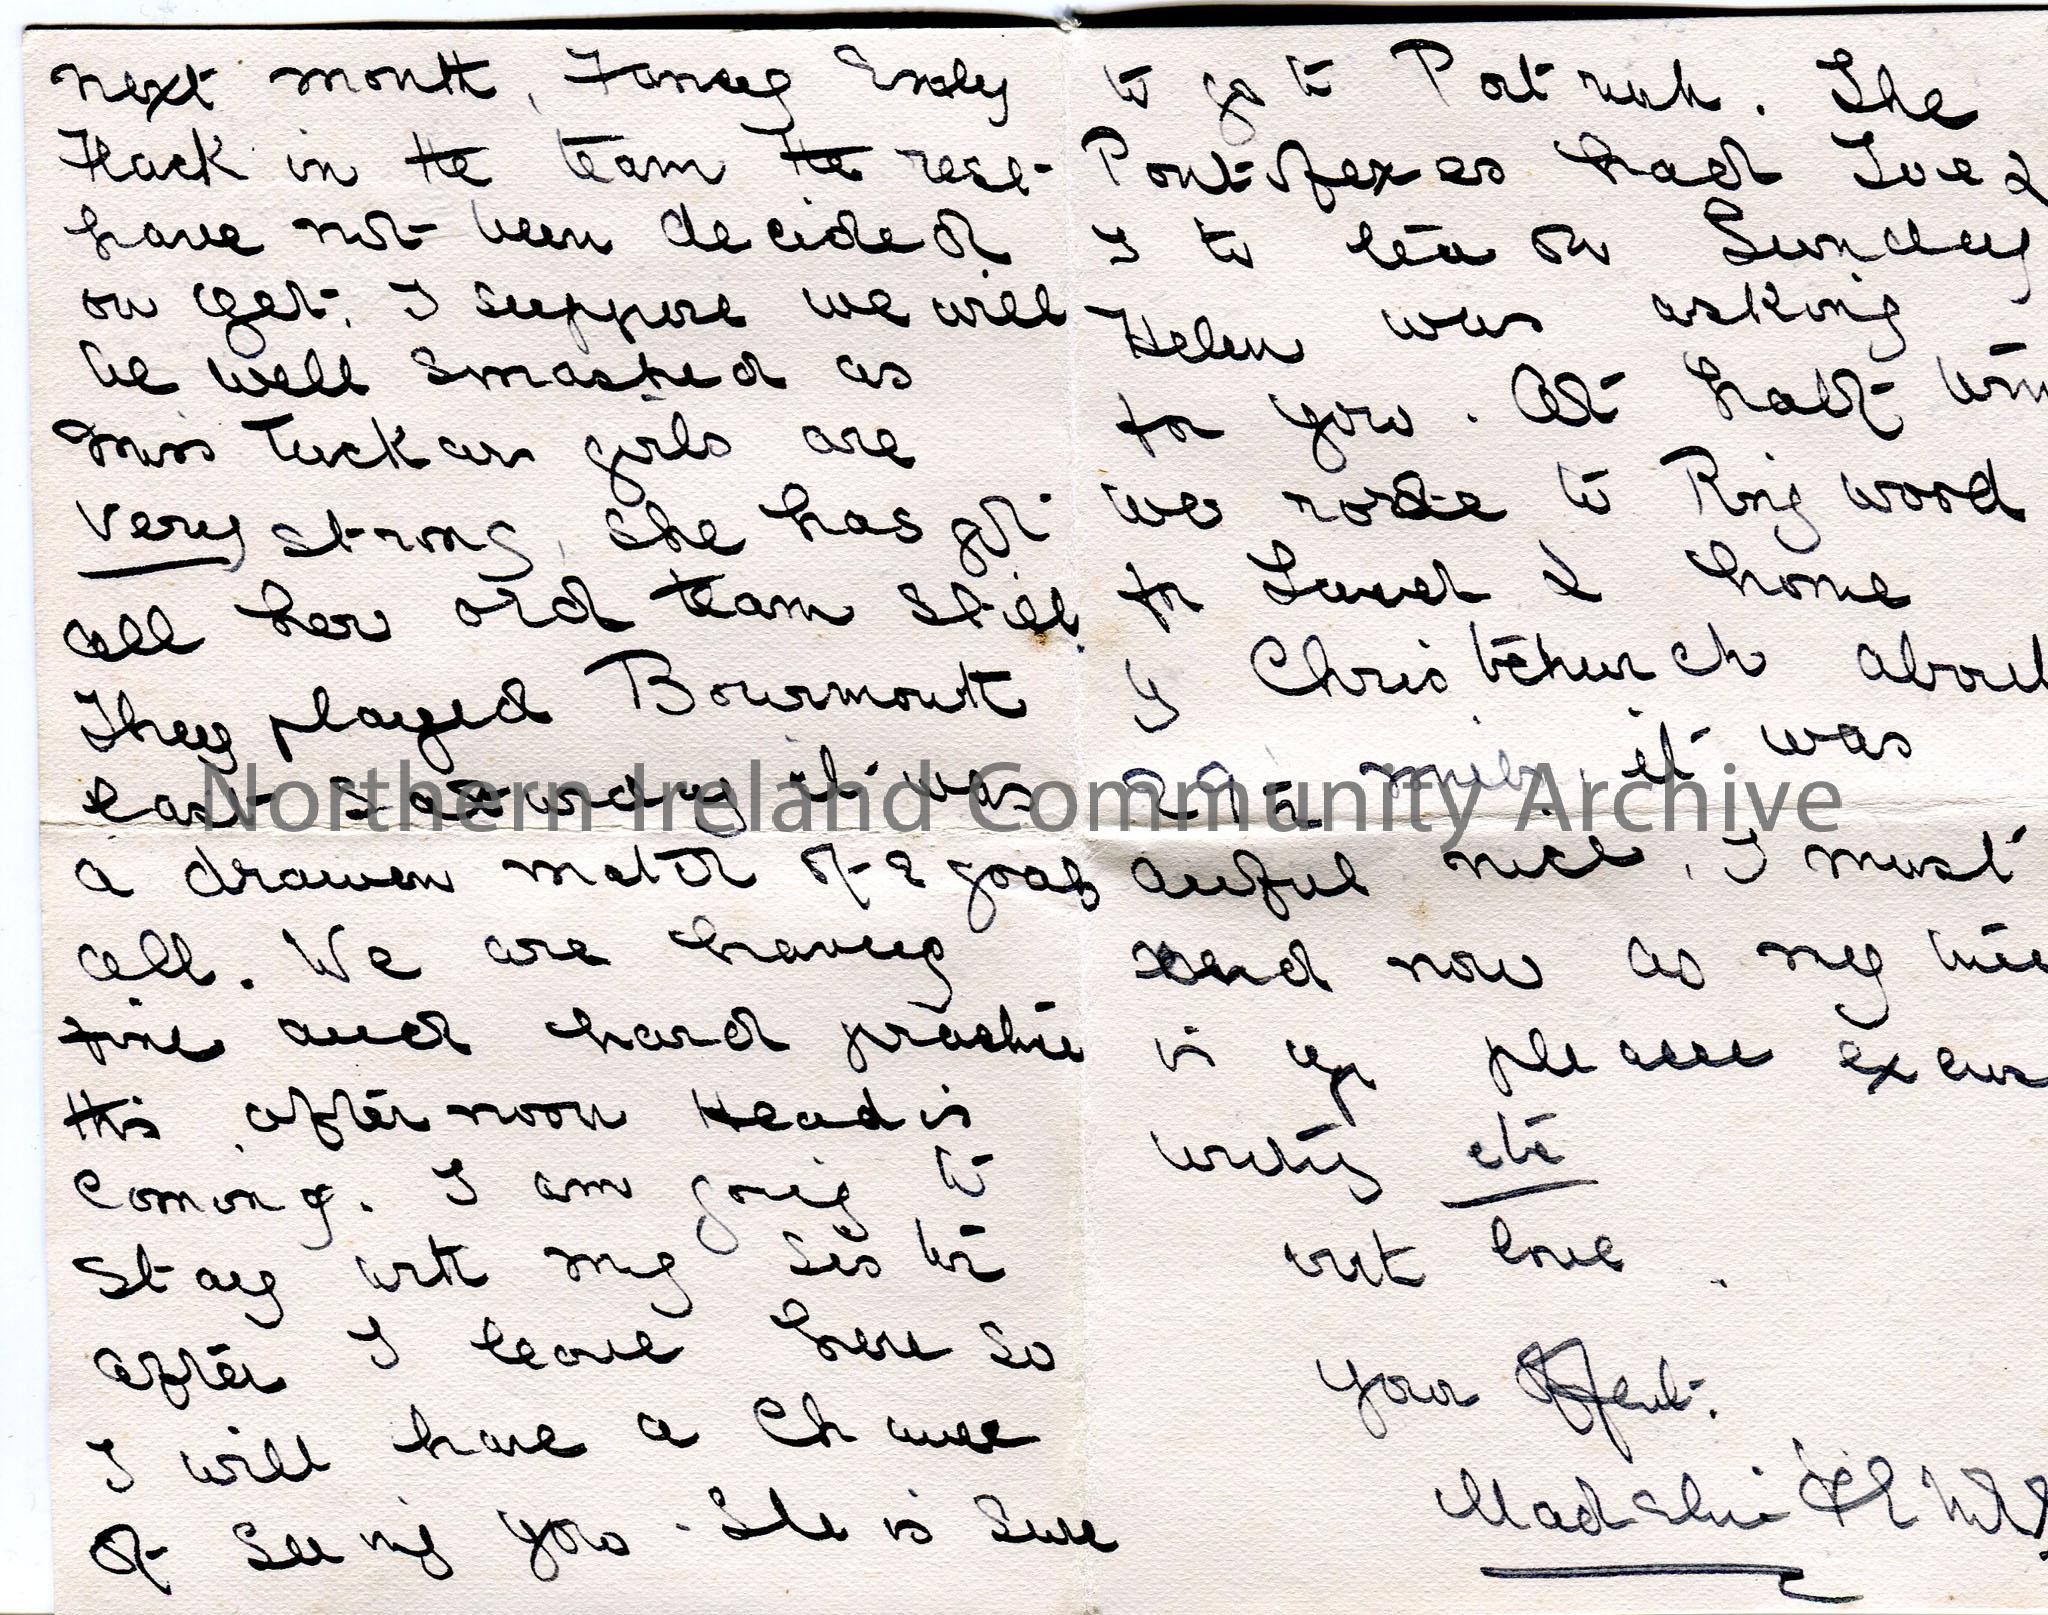 next month, Fancy Emly
Hack in the team the rest
have not been decided
on yet. I suppose we will
be well smashed as
Miss Tuckers girls are
very strong, she has got
all her old team still.
They played Bournmouth
last Saturday it was
a drawen match of 2 goals
all. We are having
fine and hard practice
this afternoon Head is
coming. I am going to
stay with my sister
after I leave here so
I will have a chance
of seeing you. She is sure
to go to Portrush. The
Pontifexes had &
I to tea on Sunday
Helen was asking
for you. At half
we rode to Ringwood
for & home
by Christchurch about
29½ miles, it was
awful nice. I must
end now as my
is up please
writing etc
with love.
Your Affect.
Northern Ireland Community Archive